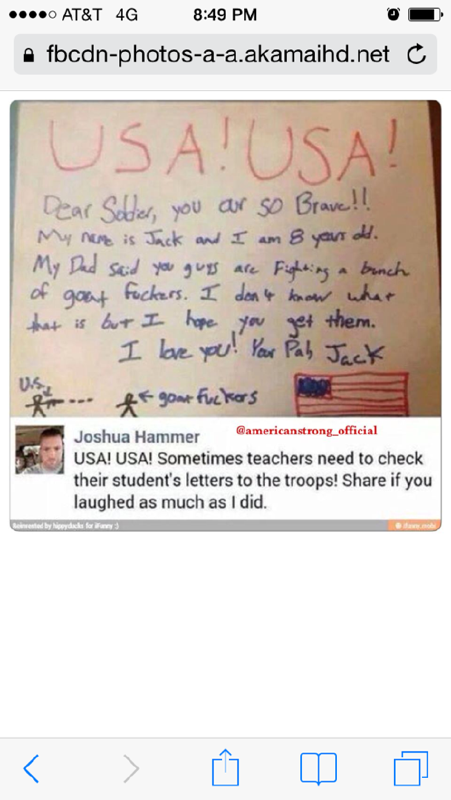 AT&T 4G 8:49 PM
fbcdn-photos-a-a.akamaihd.net
USA! USA!
Dear Soldier, you are so Brave!!
My name is Jack and I am 8 years old.
My Dad said you guys are Fighting a bunch
of goat fuckers. I don't know what
that is but I hope you get them.
I love you! Your Pal, Jack
U.S.
goat fuckers
Joshua Hammer
@americanstrong_official
USA! USA! Sometimes teachers need to check
their student's letters to the troops! Share if you
laughed as much as I did.
Reinvented by hippyducks for iFunny :)